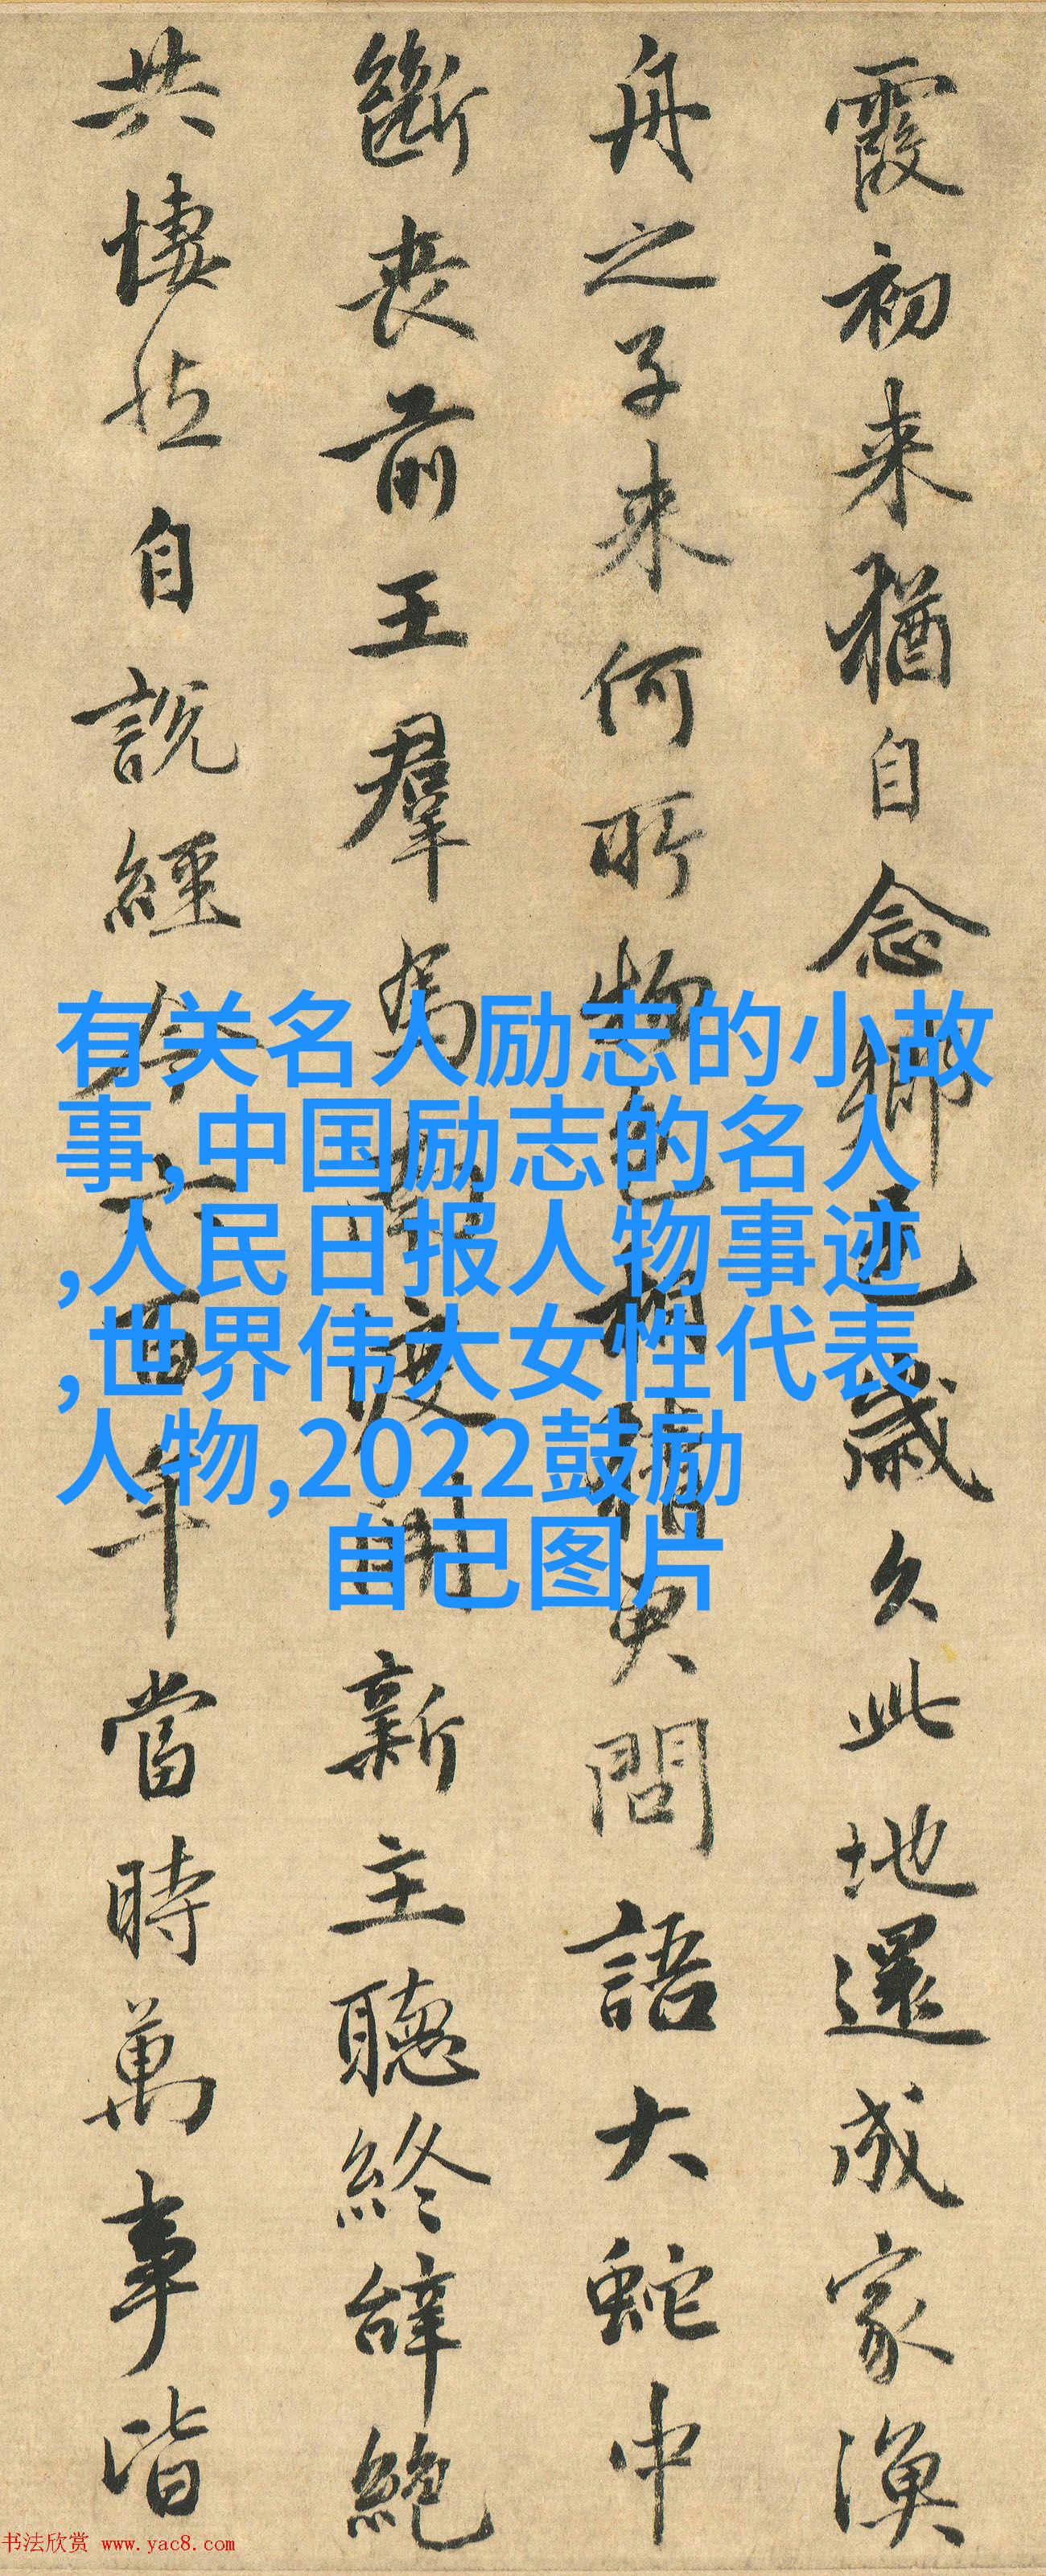 霞初来猶自念鄉邑歲久此地還成家漁
舟之子来何所物色相猜更問語大蛇中
斷丧前王羣馬南渡開新主聽終辭絶
共悽然自說經今六百年當時萬事皆
有关名人励志的小故
事,中国励志的名人
,人民日报人物事迹
,世界伟大女性代表
人物,2022鼓励
自己图片
书法欣赏 www.yac8.com